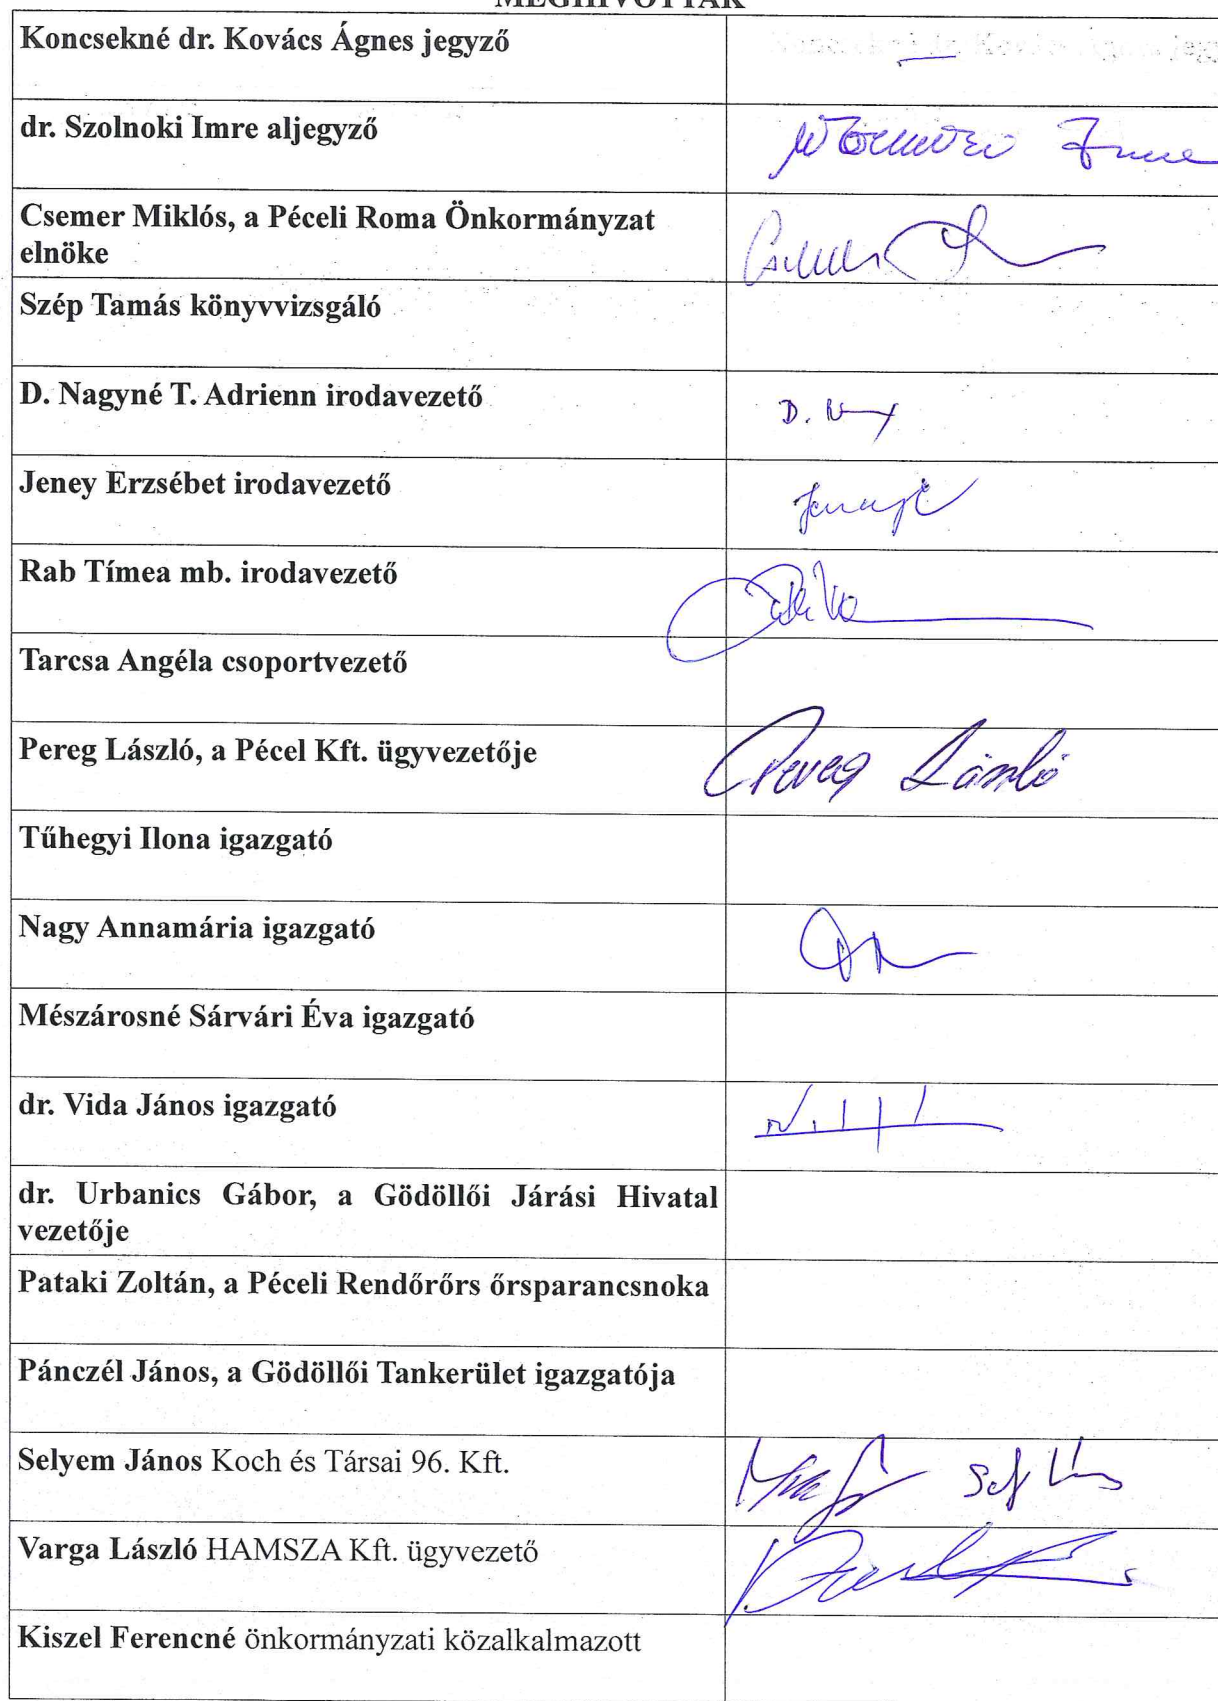 MEGHÍVOTTAK
Koncsekné dr. Kovács Ágnes jegyző
dr. Szolnoki Imre aljegyző
Csemer Miklós, a Péceli Roma Önkormányzat
elnöke
Szép Tamás könyvvizsgáló
D. Nagyné T. Adrienn irodavezető
D. N
Jeney Erzsébet irodavezető
Rab Tímea mb. irodavezető
Tarcsa Angéla csoportvezető
Pereg László, a Pécel Kft. ügyvezetője
Pereg László
Tűhegyi Ilona igazgató
Nagy Annamária igazgató
Mészárosné Sárvári Éva igazgató
dr. Vida János igazgató
dr. Urbanics Gábor, a Gödöllői Járási Hivatal
vezetője
Pataki Zoltán, a Péceli Rendőrőrs őrsparancsnoka
Pánczél János, a Gödöllői Tankerület igazgatója
Selyem János Koch és Társai 96. Kft.
Varga László HAMSZA Kft. ügyvezető
Kiszel Ferencné önkormányzati közalkalmazott